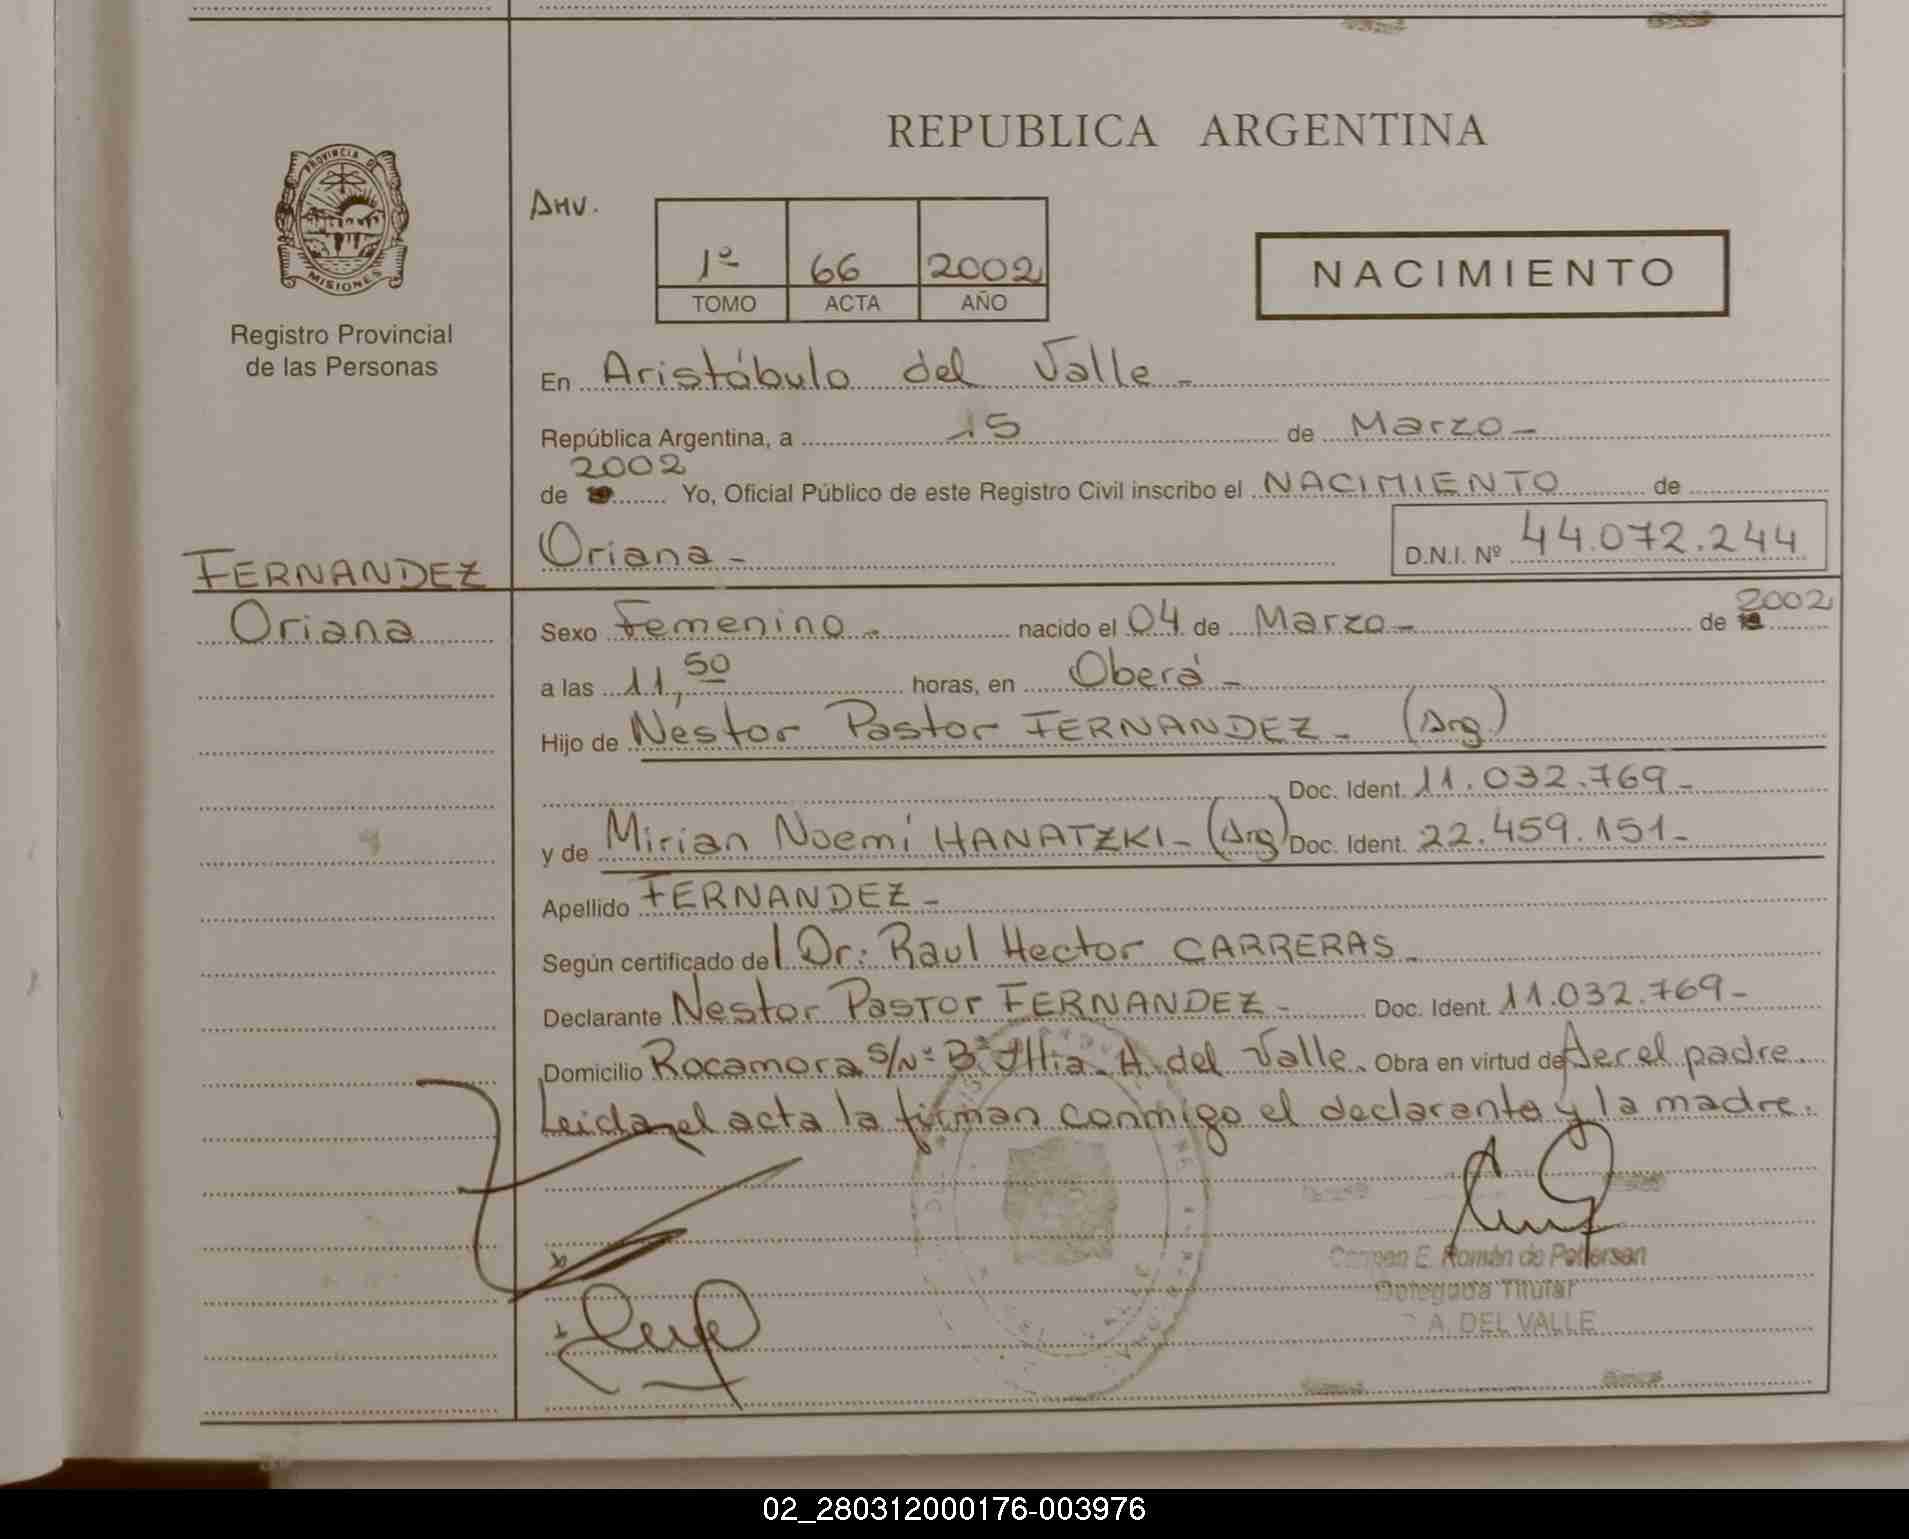 REPUBLICA ARGENTINA
PROVINCIA DE
MISIONES
Registro Provincial
de las Personas
AHV.
1º 66 2002
TOMO ACTA AÑO
NACIMIENTO
En Aristóbulo del Valle -
República Argentina, a 15 de Marzo -
2002
de Yo, Oficial Público de este Registro Civil inscribo el NACIMIENTO de
Oriana - D.N.I. Nº 44.072.244
FERNANDEZ
Oriana
Sexo Femenino - nacido el 04 de Marzo - de 2002
a las 11,50 horas, en Oberá -
Hijo de Nestor Pastor FERNANDEZ - (Arg.)
Doc. Ident. 11.032.769 -
y de Mirian Noemí HANATZKI - (Arg) Doc. Ident. 22.459.151 -
Apellido FERNANDEZ -
Según certificado del Dr: Raul Hector CARRERAS -
Declarante Nestor Pastor FERNANDEZ - Doc. Ident. 11.032.769 -
Domicilio Rocamora S/Nº Bº Illia - A. del Valle. Obra en virtud de ser el padre.
Leida el acta la firman conmigo el declarante y la madre.
Carmen E. Román de Petersen
Delegada Titular
A. DEL VALLE
02_280312000176-003976